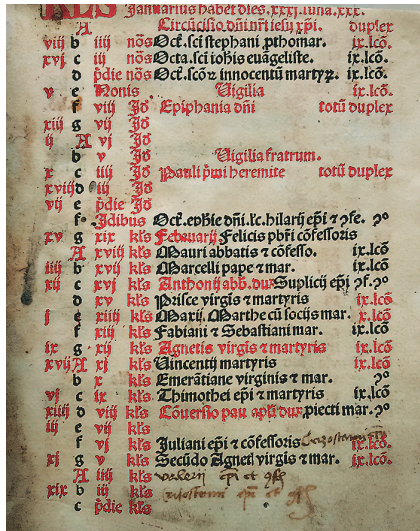 KLs Januarius habet dies .xxxj. luna .xxx.
A Circūcisio dn̄i nr̄i iesu xp̄i. duplex
viij b iiij nōs Oct̄. sci stephani p̱thomar. ix.lcō.
xvj c iij nōs Octa. sci iohis euāgeliste. ix.lcō.
d p̄die nōs Oct̄. scō⁊ innocentū martyꝝ. ix.lcō.
v e Nonis Uigilia ix.lcō.
f viij Jd̄ Epiphania dn̄i totū duplex
xiij g vij Jd̄
ij A vj Jd̄
b v Jd̄ Uigilia fratrum.
x c iiij Jd̄ Pauli p̄mi heremite totū duplex
xviij d iij Jd̄
vij e p̄die Jd̄
f Jdibus Oct̄. ep̄hie dn̄i. hilarij ep̄i ⁊ ꝯfe. ꝯ°
xv g xix kl̄s Februarij Felicis pbr̄i cōfessoris
A xviij kl̄s Mauri abbatis ⁊ cōfesso. ix.lcō
iiij b xvij kl̄s Marcelli pape ⁊ mar. ix.lcō
xij c xvj kl̄s Anthonij abb̄. dux Suplicij ep̄i ꝯf. ꝯ°
d xv kl̄s Prisce virgis ⁊ martyris ix.lcō
j e xiiij kl̄s Marij. Marthe cū socijs mar. x.lcō
f xiij kl̄s Fabiani ⁊ Sebastiani mar. ix.lcō
ix g xij kl̄s Agnetis virgis ⁊ martyris ix.lcō
xvij A xj kl̄s Uincentij martyris ix.lcō
b x kl̄s Emerātiane virginis ⁊ mar. ꝯ°
vj c ix kl̄s Thimothei ep̄i ⁊ martyris ix.lcō
xiiij d viij kl̄s Cōuersio pau apl̄i dux. piecti mar. ꝯ°
iij e vij kl̄s
f vj kl̄s Juliani ep̄i ⁊ cōfessoris ix.lcō
xj g v kl̄s Secūdo Agneti virgis ⁊ mar. ix.lcō.
A iiij kl̄s valerij ep̄i et
xix b iij kl̄s ep̄i et
c p̄die kl̄s